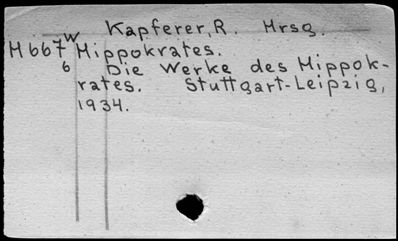 Kapferer, R. Hrsg.
W
H667 Hippokrates.
6 Die Werke des Hippok-
rates. Stuttgart-Leipzig,
1934.